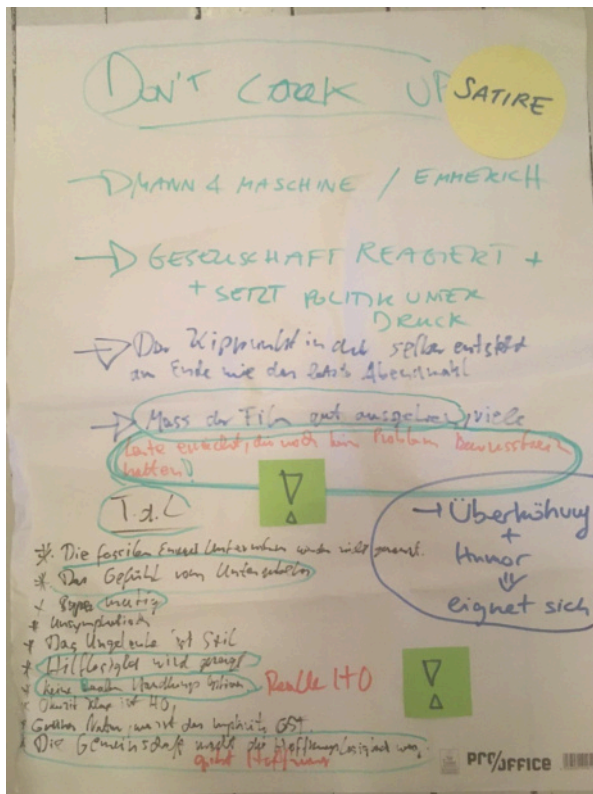 DON'T LOOK UP
SATIRE
→ MANN & MASCHINE / EMMERICH
→ GESELLSCHAFT REAGIERT +
+ SETZT POLITIK UNTER
DRUCK
→ Der Kippunkt in dich selber entsteht
am Ende wie das letzte Abendmahl
→ Muss der Film gut ausgehen, viele
Leute erreicht, die noch kein Problem Bewusstsein
hatten!
!
T.d.L
→ Überhöhung
+
Humor
⇓
eignet sich
* Die fossilen Energie Unternehmen werden nicht genannt.
* Das Gefühl vom
* mutig
* Unsympathisch
* Das Ungelenke ist Stil
* Hilflosigkeit wird gezeigt
* keine Handlungs
Reale HO
!
* ist HO,
* Natur, das GST
* Die Gemeinschaft macht die Hoffnungslosigkeit weg,
gibt Hoffnung
PRO/OFFICE